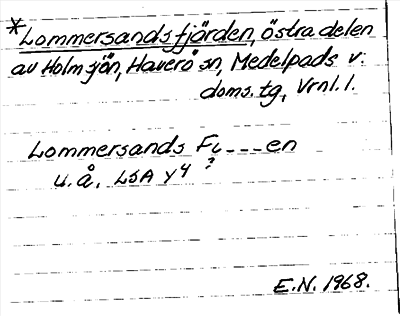 * Lommersandsfjärden, östra delen
av Holmsjön, Haverö sn, Medelpads v:
doms. tg, Vrnl. l.
Lommersands Fi---en
?
u.å. LSA Y4
E.N. 1968.